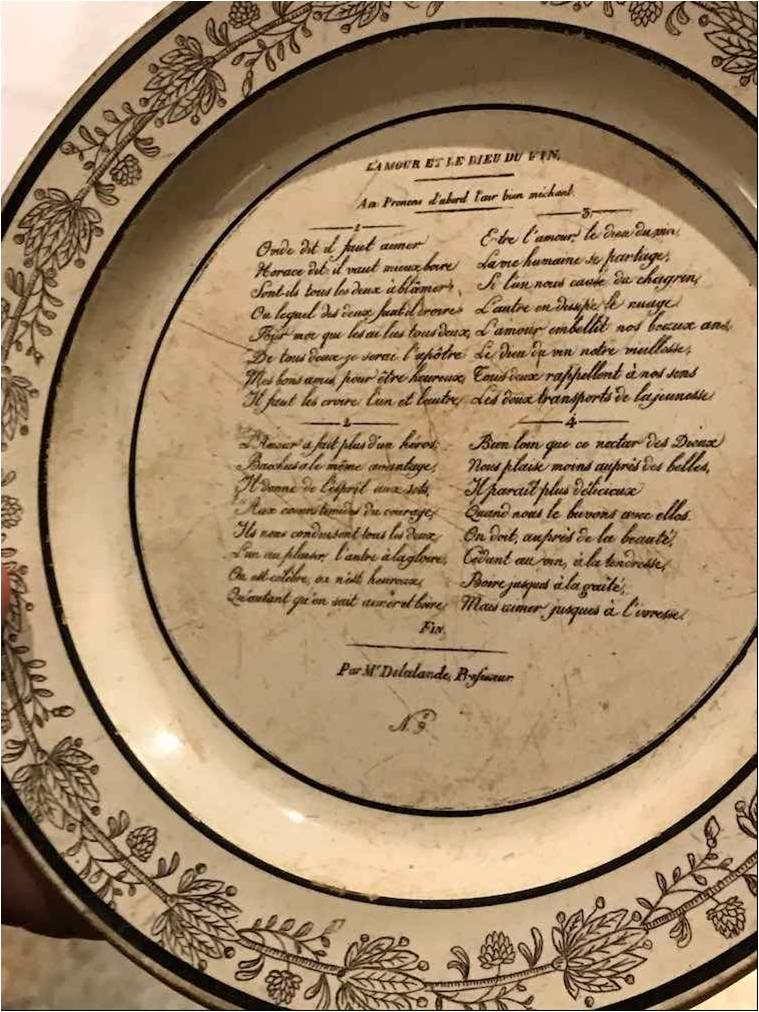 L'AMOUR ET LE DIEU DU VIN.
Air Prenons d'abord l'air bien méchant.
1
Ovide dit il faut aimer
Horace dit il vaut mieux boire
Sont-ils tous les deux à blâmer,
Ou lequel des deux faut il croire
Pour moi qui les ai lus tous deux,
De tous deux je serai l'apôtre
Mes bons amis, pour être heureux,
Il faut les croire l'un et l'autre,
2
L'Amour a fait plus d'un héros,
Bacchus a le même avantage,
Il donne de l'esprit aux sots,
Aux cœurs timides du courage,
Ils nous conduisent tous les deux,
L'un au plaisir, l'autre à la gloire,
On est célèbre, on n'est heureux,
Qu'autant qu'on sait aimer et boire
3
Etre l'amour, le dieu du vin,
La vie humaine se partage,
Si l'un nous cause du chagrin,
L'autre en dissipe le nuage
L'amour embellit nos beaux ans,
Le dieu du vin notre vieillesse,
Tous deux rappellent à nos sens
Les doux transports de la jeunesse
4
Bien loin que ce nectar des Dieux
Nous plaise moins auprès des belles,
Il parait plus délicieux
Quand nous le buvons avec elles.
On doit, auprès de la beauté,
Cédant au vin, à la tendresse,
Boire jusques à la gaité,
Mais aimer jusques à l'ivresse.
Fin.
Par Mr Delalande, Professeur
No 9